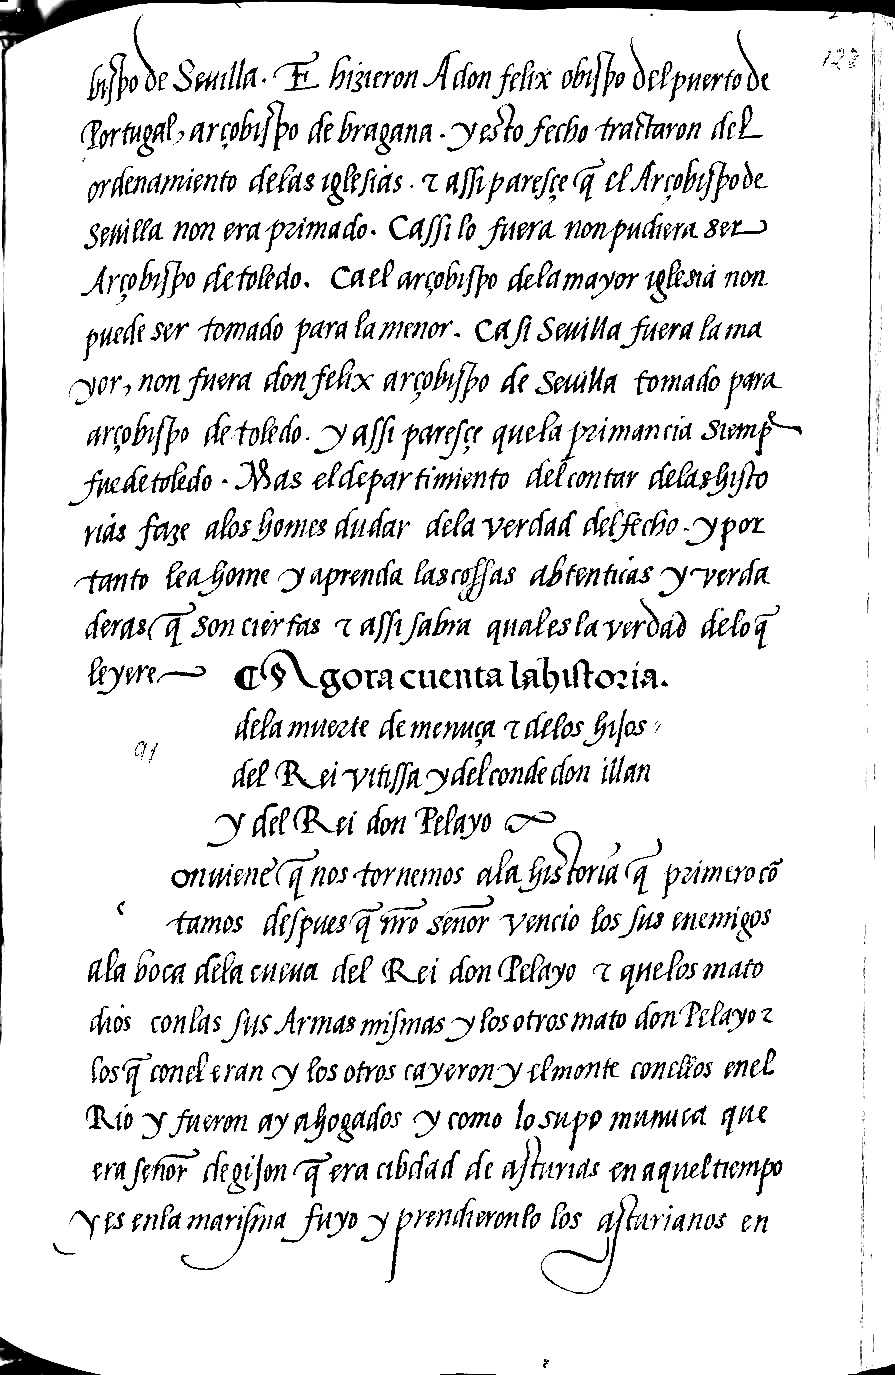 128
bispo de Seuilla. E hizieron A don felix obispo del puerto de
Portugal, arçobispo de bragana. y esto fecho tractaron del
ordenamiento delas iglesias. τ assi paresçe q̃ el Arçobispo de
Seuilla non era primado. Cassi lo fuera non pudiera ser
Arçobispo de toledo. Ca el arçobispo dela mayor iglesia non
puede ser tomado para la menor. Ca si Seuilla fuera la ma
yor, non fuera don felix arçobispo de Seuilla tomado para
arçobispo de toledo. y assi paresçe que la primancia siemp̃
fue de toledo. Mas el departimiento del contar delas histo
rias faze alos homes dudar dela verdad del fecho. y por
tanto lea home y aprenda las cossas abtenticas y verda
deras q̃ son ciertas τ assi sabra qual es la verdad delo q̃
leyere
¶ Agora cuenta la historia.
dela muerte de menuça τ delos hijos
del Rei vitissa y del conde don illan
y del Rei don Pelayo
91
onuiene q̃ nos tornemos ala historia q̃ primero cõ
c
tamos despues q̃ nr̃o señor vencio los sus enemigos
ala boca dela cueua del Rei don Pelayo τ que los mato
dios con las sus Armas mismas y los otros mato don Pelayo τ
los q̃ con el eran y los otros cayeron y el monte con ellos en el
Rio y fueron ay ahogados y como lo supo munuca que
era señor de gijon q̃ era cibdad de asturias en aquel tiempo
y es en la marisma fuyo y prendieronlo los asturianos en